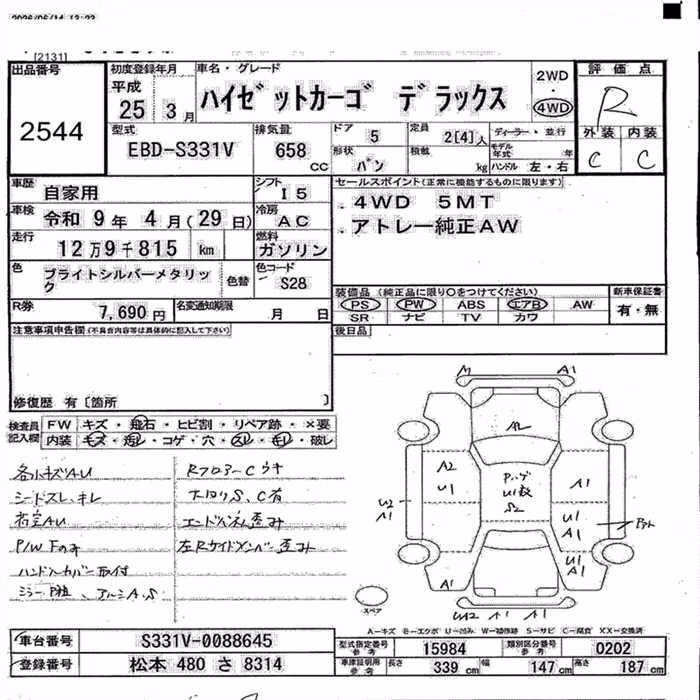 [2131]
出品番号
2544
初度登録年月
平成
25 3月
車名・グレード
ハイゼットカーゴ デラックス
2WD
・
4WD
評価点
R
外装 内装
C C
型式
EBD-S331V
排気量
658 CC
ドア
5
形状
バン
定員
2[4]人
積載
kg
ディーラー・並行
モデル年式 年
ハンドル 左・右
車歴
自家用
シフト
I5
車検
令和 9年 4月(29日)
冷房
AC
走行
12万9千815 km
燃料
ガソリン
色
ブライトシルバーメタリック
色替
色コード
S28
R券
7,690円
名変通知期限
月 日
セールスポイント(正常に機能するものに限ります)
.4WD 5MT
.アトレー純正AW
装備品(純正品に限り○をつけてください)
PS PW ABS エアB AW
SR ナビ TV カワ
新車保証書
有・無
後日品
注意事項申告欄(不具合内容等は具体的に記入して下さい)
修復歴 有〔箇所 〕
検査員記入欄
FW キズ・飛石・ヒビ割・リペア跡・×要
内装 キズ・汚レ・コゲ・穴・スレ・キレ・破レ
各ルキズAU
シートスレ、キレ
P/W Fのみ
ハンドルカバー取付
RフロアーCウキ
エンドパネル歪み
左Rサイドメンバー歪み
A1
A2
U1
A1
U2
A1
U1
A1
U1
A1
A1
A1
スペア
A-キズ E-エクボ U-凹み W-補修跡 S-サビ C-腐食 XX-交換済
車台番号
S331V-0088645
登録番号
松本 480 さ 8314
型式指定番号
参考
15984
類別区分番号
参考
0202
車庫証明用
参考
長さ 339 cm 幅 147 cm 高さ 187 cm